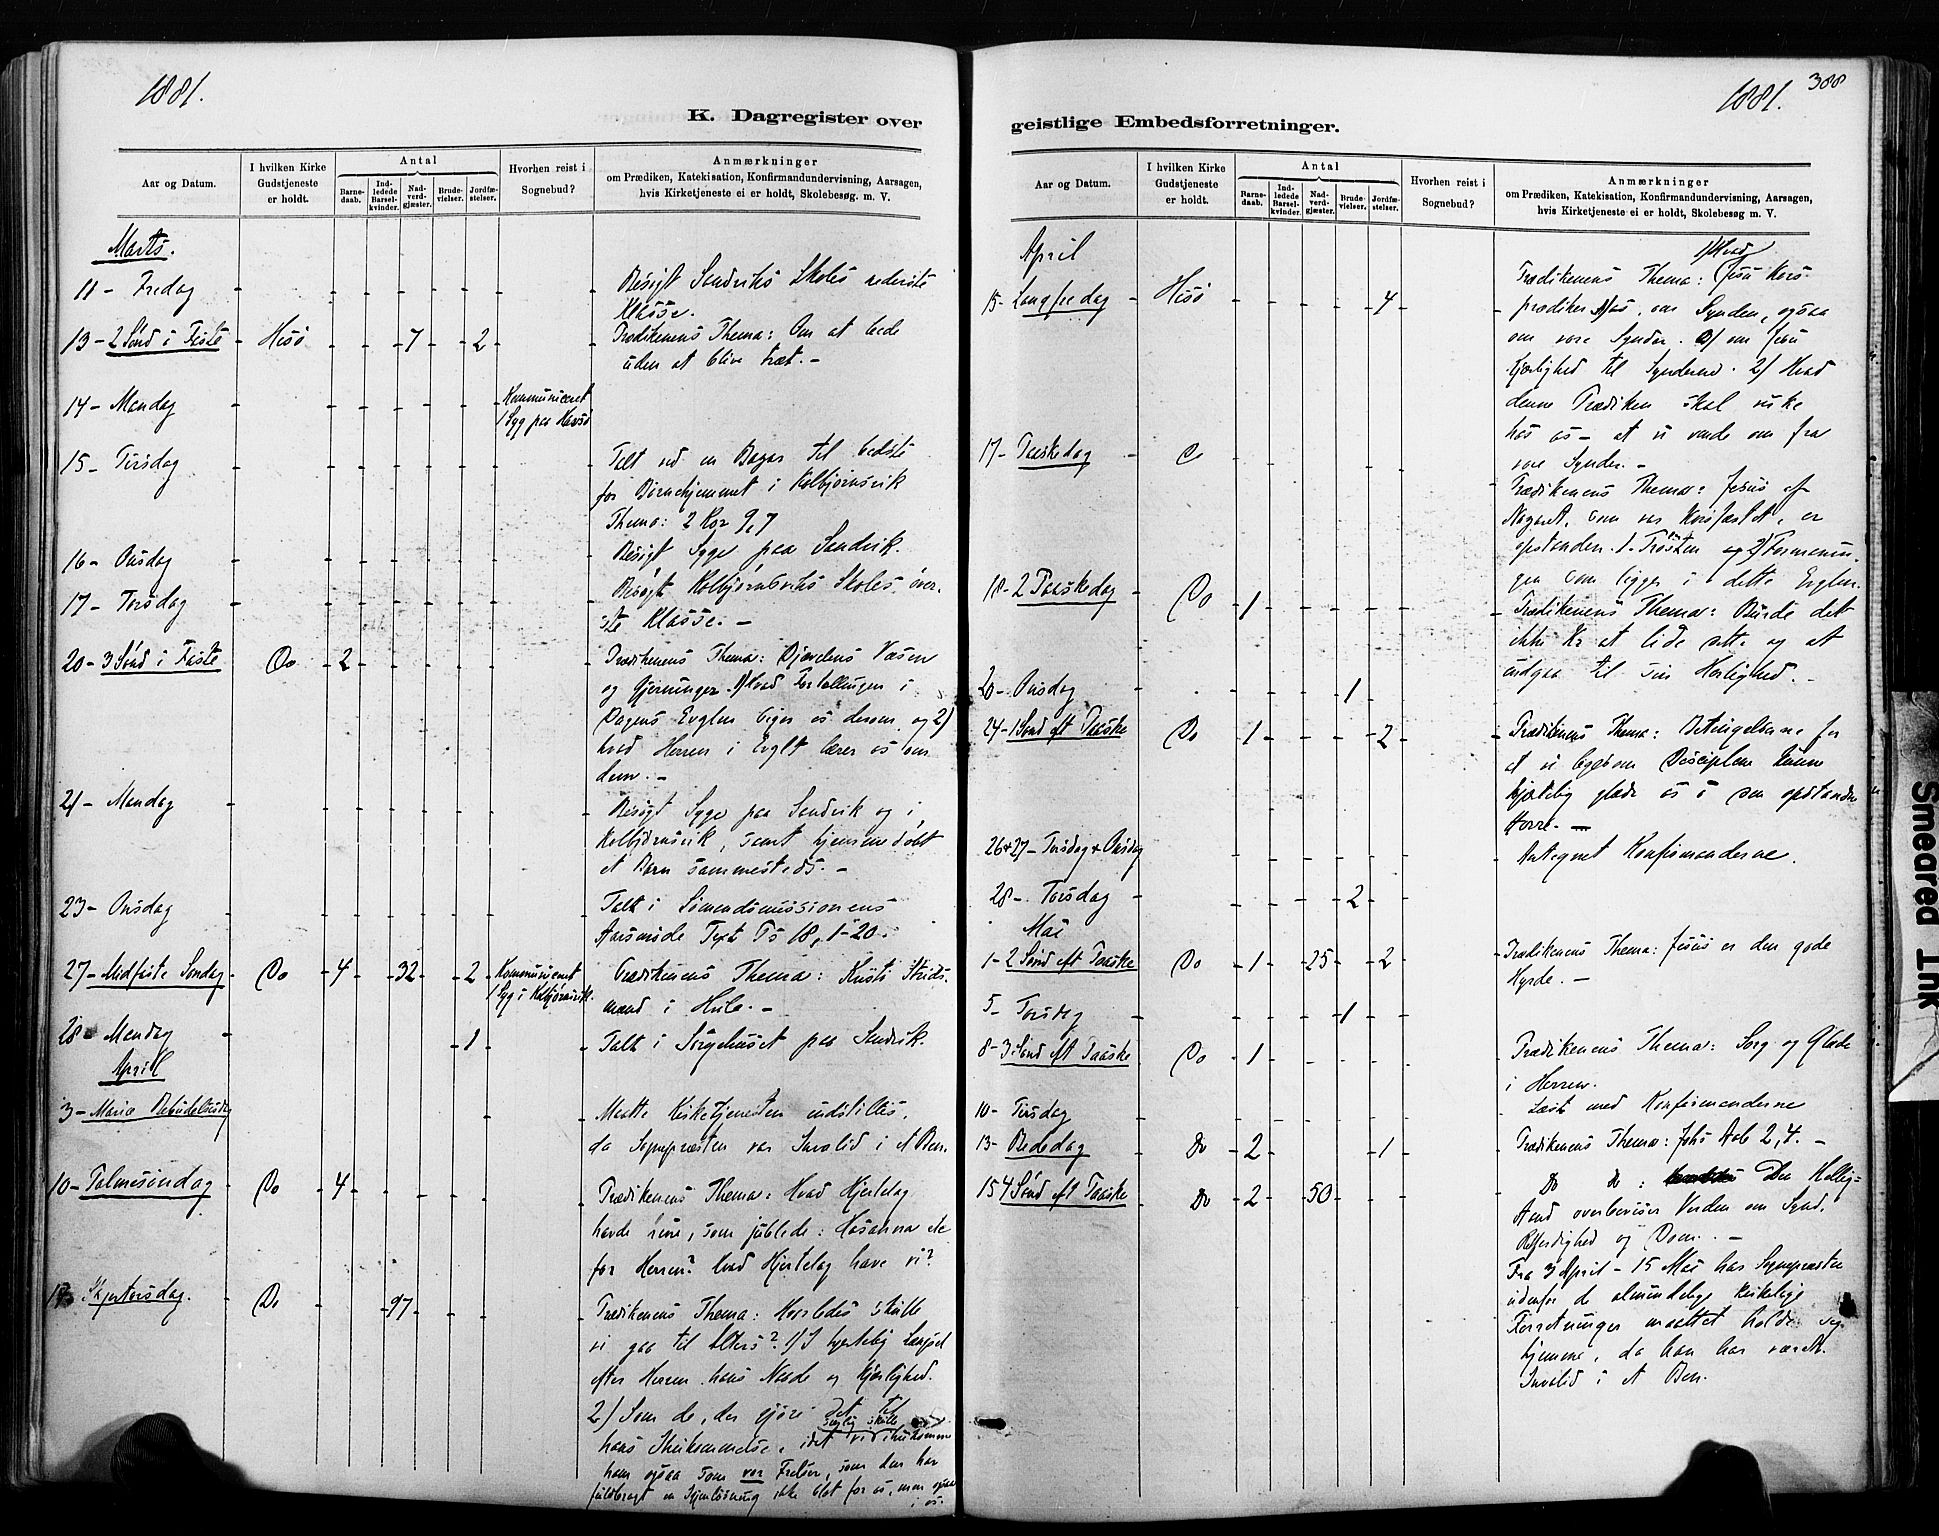 1881.
K. Dagregister over
Aar og Datum.
I hvilken Kirke Gudstjeneste er holdt.
Antal
Barnedaab.
Indledede Barselkvinder.
Nadverdgjæster.
Brudevielser.
Jordfæstelser.
Hvorhen reist i Sognebud?
Anmærkninger
om Prædiken, Katekisation, Konfirmandundervisning, Aarsagen,
hvis Kirketjeneste ei er holdt, Skolebesøg. m. V.
Marts.
11 - Fredag
Besøgt Sandviks Skoles nederste
Klasse.
13 - 2 Sønd i Faste - Hisø - 7 - 2
Prædikenens Thema: Om at bede
uden at blive træt. -
14 - Mandag
Kommuniceret
1 Syg paa Havsö
15 - Tirsdag
Talt ved en Bazar til bedste
for Børnehjemmet i Kolbjørnsvik
Thema: 2 Kor 9,7
16 - Onsdag
Besøgt Syge paa Sandvik.
17 - Torsdag
Besøgt Kolbjørnsviks Skoles øver-
ste Klasse. -
20 - 3 Sönd i Faste - Do - 2
Prædikenens Thema: Djævelens Væsen
og Gjerninger. 1/ Hvad Fortællingen i
Dagens Evglm siger os derom, og 2/
hvad Herren i Evglt lærer os om
dem. -
21 - Mandag
Besøgt Syge paa Sandvik og i
Kolbjørnsvik, samt hjemmedøbt
et Barn sammesteds. -
23 - Onsdag
Talt i Sømandsmissionens
Aarsmøde Text Ps 18, 1-20.
27 - Midfaste Søndag - Do - 4 - 32 - 2
Kommuniceret
1 Syg i Kolbjørnsvik.
Prædikenens Thema: Kristi Strids-
mænd i Hvile. -
28 - Mandag - 1
Talt i Sørgehuset paa Sandvik.
April
3 - Mariæ Bebudelsesdag
Maatte Kirketjenesten indstilles,
da Sognepræsten var Invalid i et Ben.
10 - Palmesöndag - Do - 4
Prædikenens Thema: Hvad Hjertelag
havde disse, som jublede: Hosanna etc
for Herren? hvad Hjertelag have vi?
Skjertorsdag. - Do - 97
Prædikenens Thema: Hvorledes skulle
vi gaa til Alters? 1/ I hjertelig Længsel
efter Herren, hans Naade og Kjærlighed.
2/ Som de, der gjøre det til
hans Ihukommelse, idet vi ihukomme
ham ogsaa som vor Frelser, som den har
fuldbragt en Gjenløsning ikke blot for os, men ogsaa
i os.
1881.
388
geistlige Embedsforretninger.
Aar og Datum.
I hvilken Kirke Gudstjeneste er holdt.
Antal
Barnedaab.
Indledede Barselkvinder.
Nadverdgjæster.
Brudevielser.
Jordfæstelser.
Hvorhen reist i Sognebud?
Anmærkninger
om Prædiken, Katekisation, Konfirmandundervisning, Aarsagen,
hvis Kirketjeneste ei er holdt, Skolebesøg m. V.
April
15 - Langfredag - Hisö - 4
1/ Hvad
Prædikenens Thema: Jesu Kors
prædiker os, om Synden, ogsaa
om vore Synder. om Jesu
Kjærlighed til Synderne. 2/ Hvad
denne Prædiken skal virke
hos os - at vi vende om fra
vore Synder. -
17 - Paaskedag
Prædikenens Thema: Jesus af
Nazaret, som var korsfæstet, er
opstanden. 1. Trøsten og 2/ Formanin-
gen som ligger i dette Evglm.
18 - 2 Paaskedag - Do - 1
Prædikenens Thema: Burde det
ikke Kr at lide dette og at
indgaa til sin Herlighed. -
20 - Onsdag - 1
24 - 1 Sönd eft Paaske - Do - 1 - 2
Prædikenens Thema: Betingelserne for
at vi ligesom Disciplene kunne
hjertelig glæde os i den opstandne
Herre. -
26 + 27 - Tirsdag + Onsdag
Antegnet Konfirmanderne.
28 - Torsdag - 2
Mai
1 - 2 Sönd eft Paaske - Do - 1 - 25 - 2
Prædikenens Thema: Jesus er den gode
Hyrde. -
5 - Torsdag - 1
8 - 3 Sönd eft Paaske - Do - 1
Prædikenens Thema: Sorg og Glæde
i Herren.
10 - Tirsdag
Læst med Konfirmanderne
13 - Bededag - Do - 2 - 1
Prædikenens Thema: Johs Aab 2,4. -
15 4 Sönd eft Paaske - Do - 2 - 50
Do do: Den Hellig-
Aand overbeviser Verden om Synd,
Retfærdighed og Dom. -
Fra 3 April - 15 Mai har Sognepræsten
udenfor de almindelige kirkelige
Forretninger maattet holde sig
hjemme, da han har været
Invalid i et Ben.
Smeared Ink